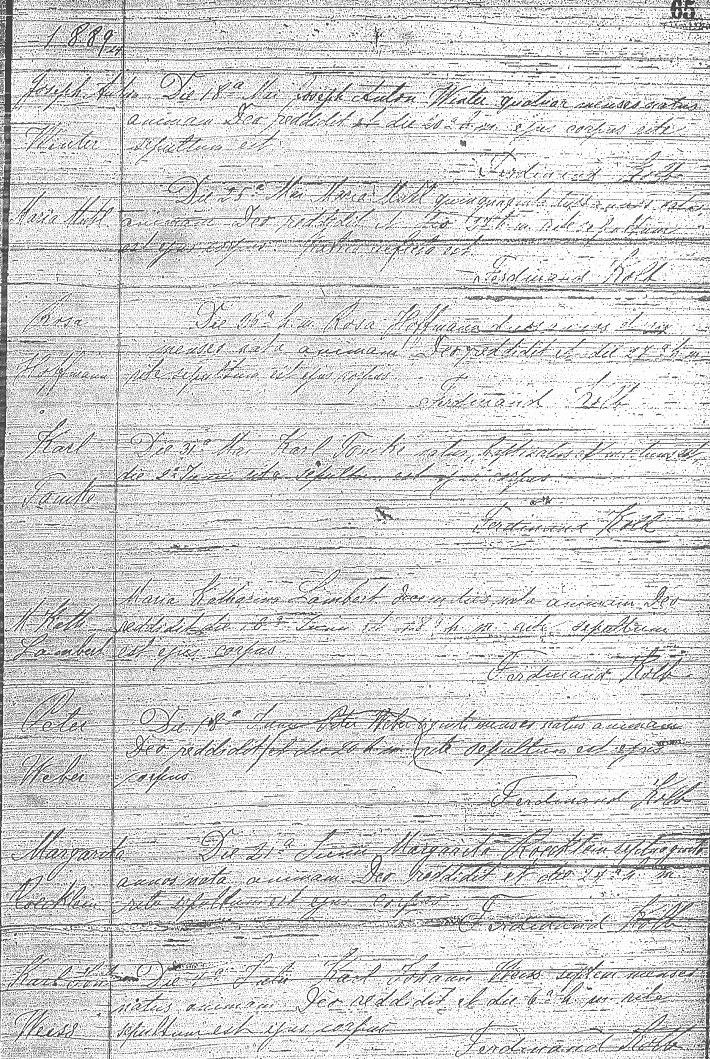 65
1889
Joseph Anton Die 18a Mai Joseph Anton Winter quatuor menses natus
animam Deo reddidit et die 20a h.m. ejus corpus rite
Winter sepultum est
Ferdinand Kolb
Die 25a Mai Maria Muhl quinquaginta annos nata
Maria Muhl animam Deo reddidit et die h.m. rite sepultum
est ejus corpus refecta est
Ferdinand Kolb
Rosa Die 26a h.m. Rosa Hoffmann duos annos et
menses nata animam Deo reddidit et die 27a h.m.
Hoffmann rite sepultum est ejus corpus
Ferdinand Kolb
Karl Die 31a Mai Karl natus
die 2a Junii rite sepultum est ejus corpus
Ferdinand Kolb
Maria Katharina Lambert decem dies nata animam Deo
M. Kath. reddidit die 16a Junii et 18a h.m. rite sepultum
Lambert est ejus corpus
Ferdinand Kolb
Peter Die 18a Junii Peter Weber menses natus animam
Deo reddidit et die 20 h.m. rite sepultum est ejus
Weber corpus
Ferdinand Kolb
Margareta Die 21a Junii Margareta Roecklein septuaginta
annos nata animam Deo reddidit et die h.m.
Roecklein rite sepultum est ejus corpus
Ferdinand Kolb
Karl Die Julii Karl Johann Weess septem menses
natus animam Deo reddidit et die 6a h.m. rite
Weess sepultum est ejus corpus
Ferdinand Kolb